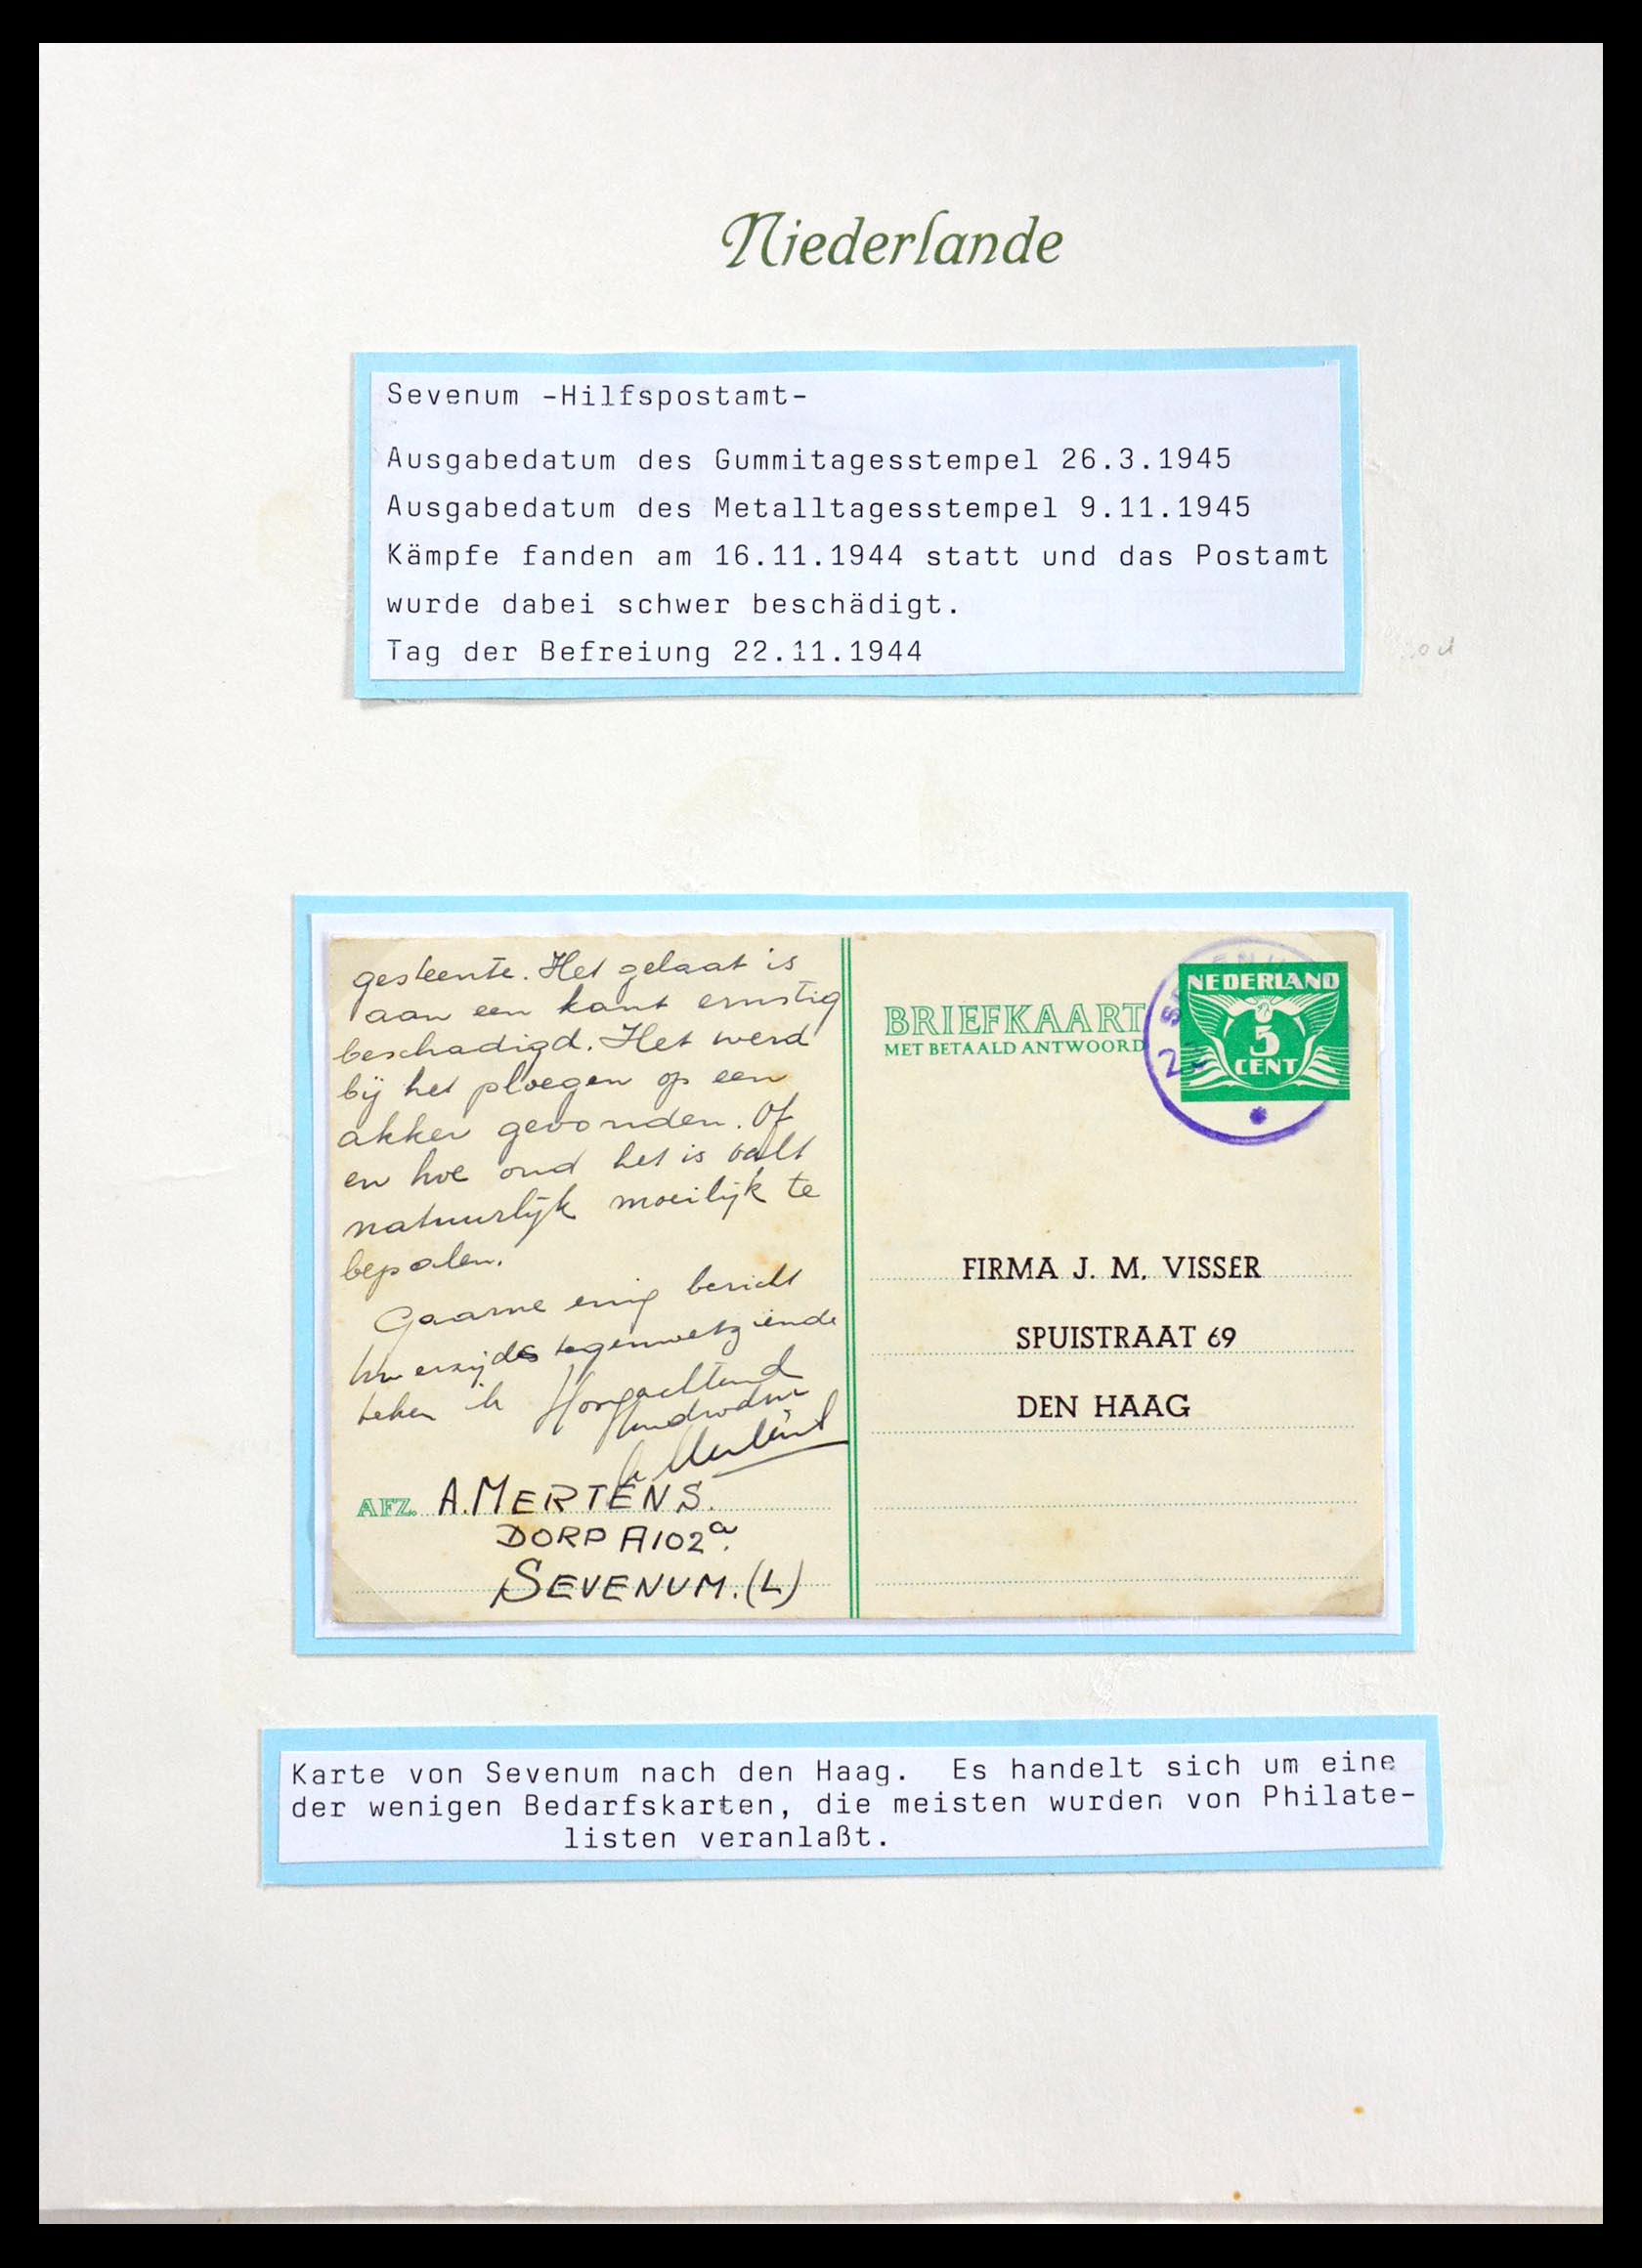 Niederlande
Sevenum -Hilfspostamt-
Ausgabedatum des Gummitagesstempel 26.3.1945
Ausgabedatum des Metalltagesstempel 9.11.1945
Kämpfe fanden am 16.11.1944 statt und das Postamt
wurde dabei schwer beschädigt.
Tag der Befreiung 22.11.1944
gesteente. Het gelaat is
aan een kant ernstig
beschadigd. Het werd
bij het ploegen op een
akker gevonden. Of
en hoe oud het is valt
natuurlijk moeilijk te
bepalen.
Gaarne enig bericht
Uwerzijds tegemoetziende
teken ik Hoogachtend
A. MERTENS.
AFZ.
DORP A102a.
SEVENUM. (L)
BRIEFKAART
MET BETAALD ANTWOORD
NEDERLAND
5
CENT
FIRMA J. M. VISSER
SPUISTRAAT 69
DEN HAAG
Karte von Sevenum nach den Haag. Es handelt sich um eine
der wenigen Bedarfskarten, die meisten wurden von Philate-
listen veranlaßt.